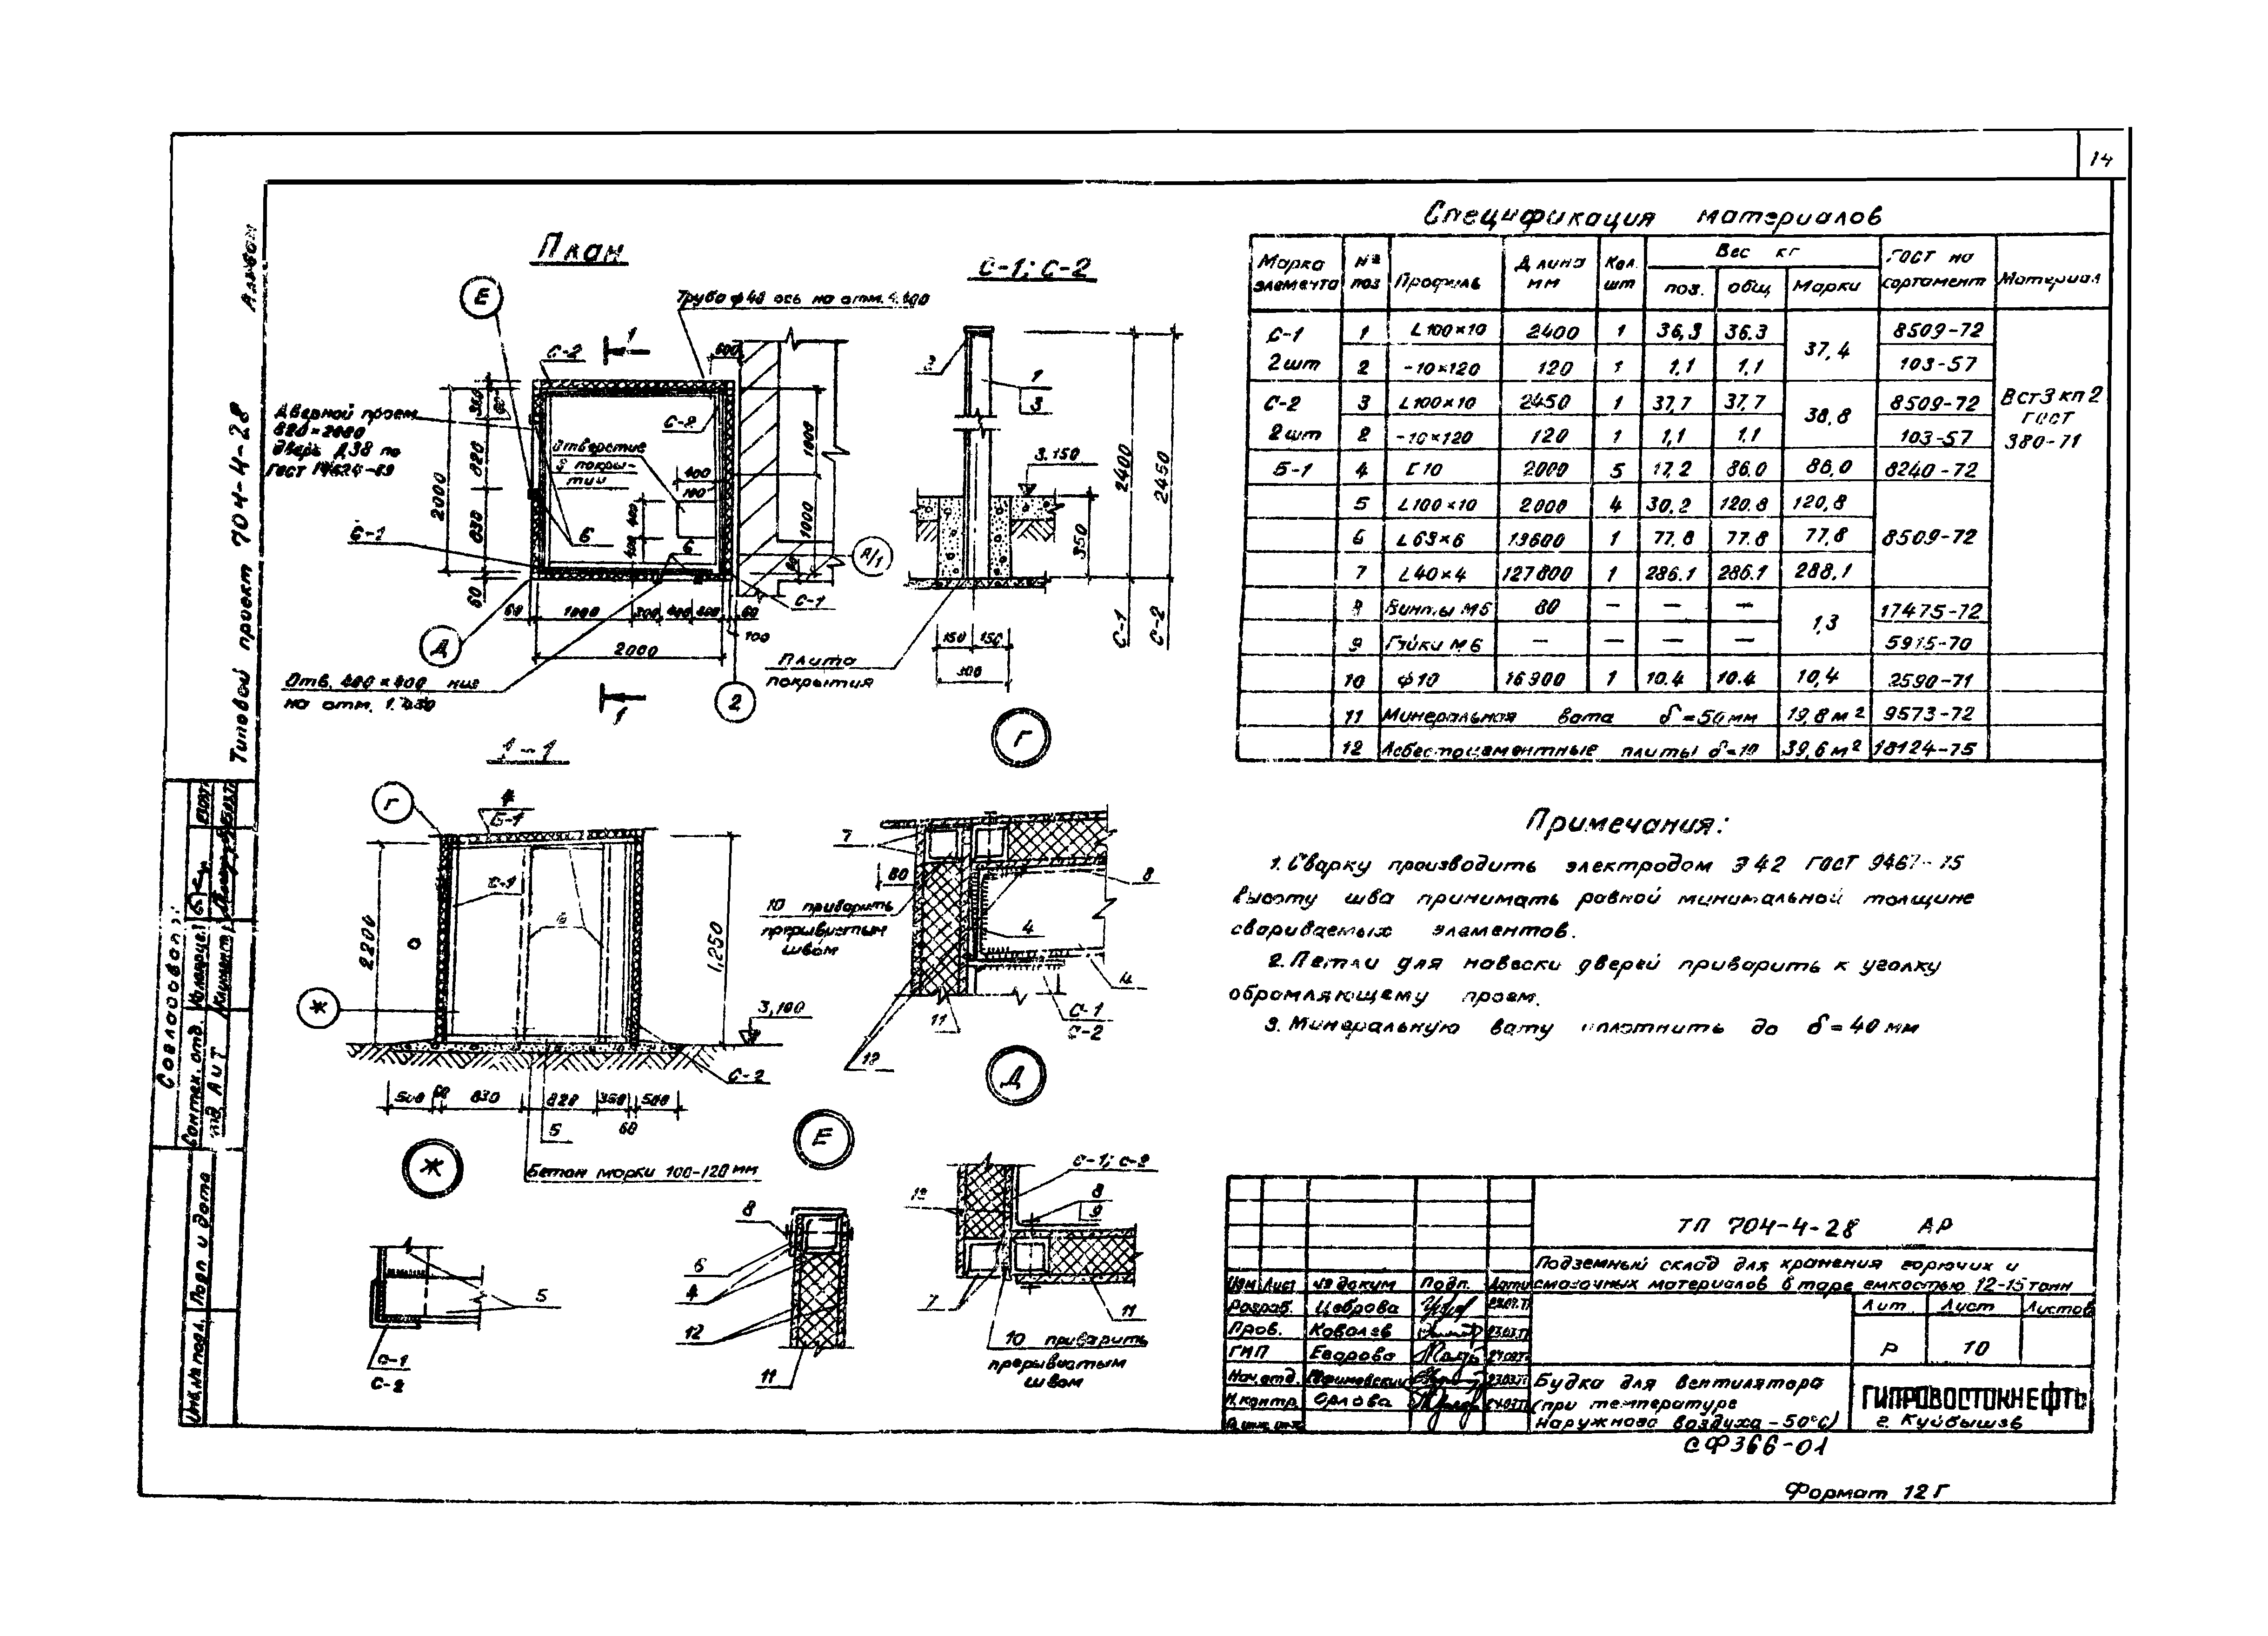 14
Альбом
Типовой проект 704-4-28
План
Е
Труба ф48 ось на отм.
С-2
1
600
Дверной проем
820×2000
дверь Д38 по
Гост 14624-69
2000
360
820
830
60
Отверстие
в покры-
тии
С-2
400
100
400
400
6
6
1000
1000
Б-1
А/1
С-1
60
1000
200
400
60
100
2000
Д
2
Отв. 400×400 низ
на отм.
1
С-1; С-2
2
1
3
3.150
350
2400
2450
С-1
С-2
150
150
300
Плита
покрытия
Г
1-1
Г
4
Б-1
С-1
6
2200
1,250
Ж
3,100
С-2
500
60
830
820
350
500
60
5
Бетон марки 100-120 мм
7
80
10 приварить
прерывистым
швом
8
4
4
11
12
С-1
С-2
Д
Ж
Е
5
С-1
С-2
8
6
4
12
11
С-1; С-2
12
8
9
7
11
10 приварить
прерывистым
швом
Спецификация материалов
Марка элемента № поз Профиль Длина мм Кол. шт Вес кг ГОСТ на сортамент Материал
поз. общ Марки
С-1 1 L100×10 2400 1 36,3 36.3 37,4 8509-72
2шт 2 -10×120 120 1 1,1 1,1 103-57
С-2 3 L100×10 2450 1 37,7 37,7 38,8 8509-72 Вст3кп2
ГОСТ
2шт 2 -10×120 120 1 1,1 1.1 103-57 380-71
Б-1 4 [10 2000 5 17,2 86.0 86,0 8240-72
5 L100×10 2000 4 30,2 120.8 120,8
6 L63×6 13600 1 77,8 77.8 77,8 8509-72
7 L40×4 127800 1 286.1 286.1 286,1
8 Винты М6 80 — — — 1,3 17475-72
9 Гайки М6 — — — — 5915-70
10 ф10 16900 1 10.4 10.4 10,4 2590-71
11 Минеральная вата δ=50мм 19,8м² 9573-72
12 Асбестоцементные плиты δ=10 39,6м² 18124-75
Примечания:
1. Сварку производить электродом Э42 ГОСТ 9467-75
высоту шва принимать равной минимальной толщине
свариваемых элементов.
2. Петли для навески дверей приварить к уголку
обромляющему проем.
3. Минеральную вату уплотнить до δ=40мм
ТП 704-4-28 АР
Подземный склад для хранения горючих и
смазочных материалов в таре емкостью 12-15тонн
Изм. Лист № докум Подп. Дата
Лит. Лист Листов
Р 10
Разраб. Цеброва
Пров. Ковалев
ГИП Егорова
Нач. отд.
Н. контр. Орлова
Будка для вентилятора
(при температуре
наружного воздуха -50°С)
ГИПРОВОСТОКНЕФТЬ
г. Куйбышев
СФ366-01
Формат 12Г
Согласовано:
Сантех. отд.
АиТ
Инв.№ подл. Подп. и дата